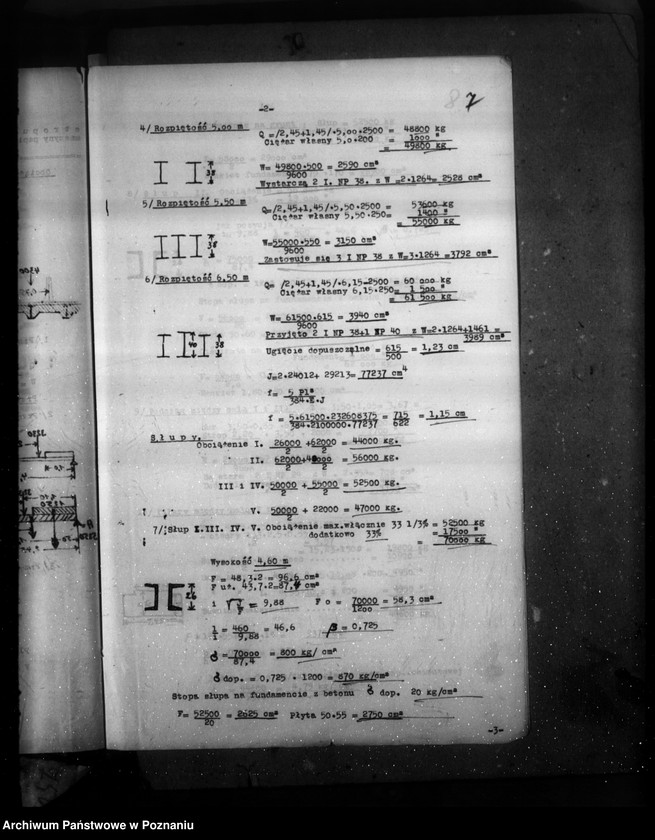 -2-
7
4/ Rozpiętość 5,00 m
Q =/2,45+1,45/·5,00·2500 = 48800 kg
Ciężar własny 5,0·200 = 1000 "
= 49800 kg
38
W= 49800·500 = 2590 cm³
9600
Wystarczą 2 I. NP 38. z W =2·1264= 2528 cm³
5/ Rozpiętość 5,50 m
Q=/2,45+1,45/·5,50·2500 = 53600 kg
Ciężar własny 5,50·250= 1400 "
= 55000 kg
38
W=55000·550 = 3150 cm³
9600
Zastosuje się 3 I NP 38 z W=3·1264=3792 cm³
6/ Rozpiętość 6,50 m
Q= /2,45+1,45/·6,15·2500 = 60 000 kg
Ciężar własny 6,15·250= 1 500 "
= 61 500 kg
W= 61500·615 = 3940 cm³
9600
Przyjęto 2 I NP 38+1 NP 40 z W=2·1264+1461 =
3989 cm³
40 38
Ugięcie dopuszczalne = 615 = 1,23 cm
500
J=2·24012+ 29213= 77237 cm4
f= 5 Pl³
384.E.J
f = 5·61500·232608375 = 715 = 1,15 cm
384·2100000·77237 622
Słupy.
Obciążenie I. 26000 +62000 = 44000 kg.
2 2
II. 62000+ = 56000 kg.
2 2
III i IV. 50000 + 55000 = 52500 kg.
2 2
V. 50000 + 22000 = 47000 kg.
2
7/ Słup I.III. IV. V. Obciążenie max.włącznie 33 1/3% = 52500 kg
dodatkowo 33% = 17500 "
= 70000 kg
Wysokość 4,60 m
F = 48,3·2 = 96,6 cm²
F uż. 43,7·2=87,4 cm²
26
i = 9,88 F o = 70000 = 58,3 cm²
1200
l = 460 = 46,6 β = 0,725
i 9,88
σ = 70000 = 800 kg/ cm²
87,4
σ dop. = 0,725 · 1200 = 870 kg/cm²
Stopa słupa na fundamencie z betonu σ dop. 20 kg/cm²
F= 52500 = 2625 cm² Płyta 50·55 = 2750 cm²
20
-3-
Archiwum Państwowe w Poznaniu